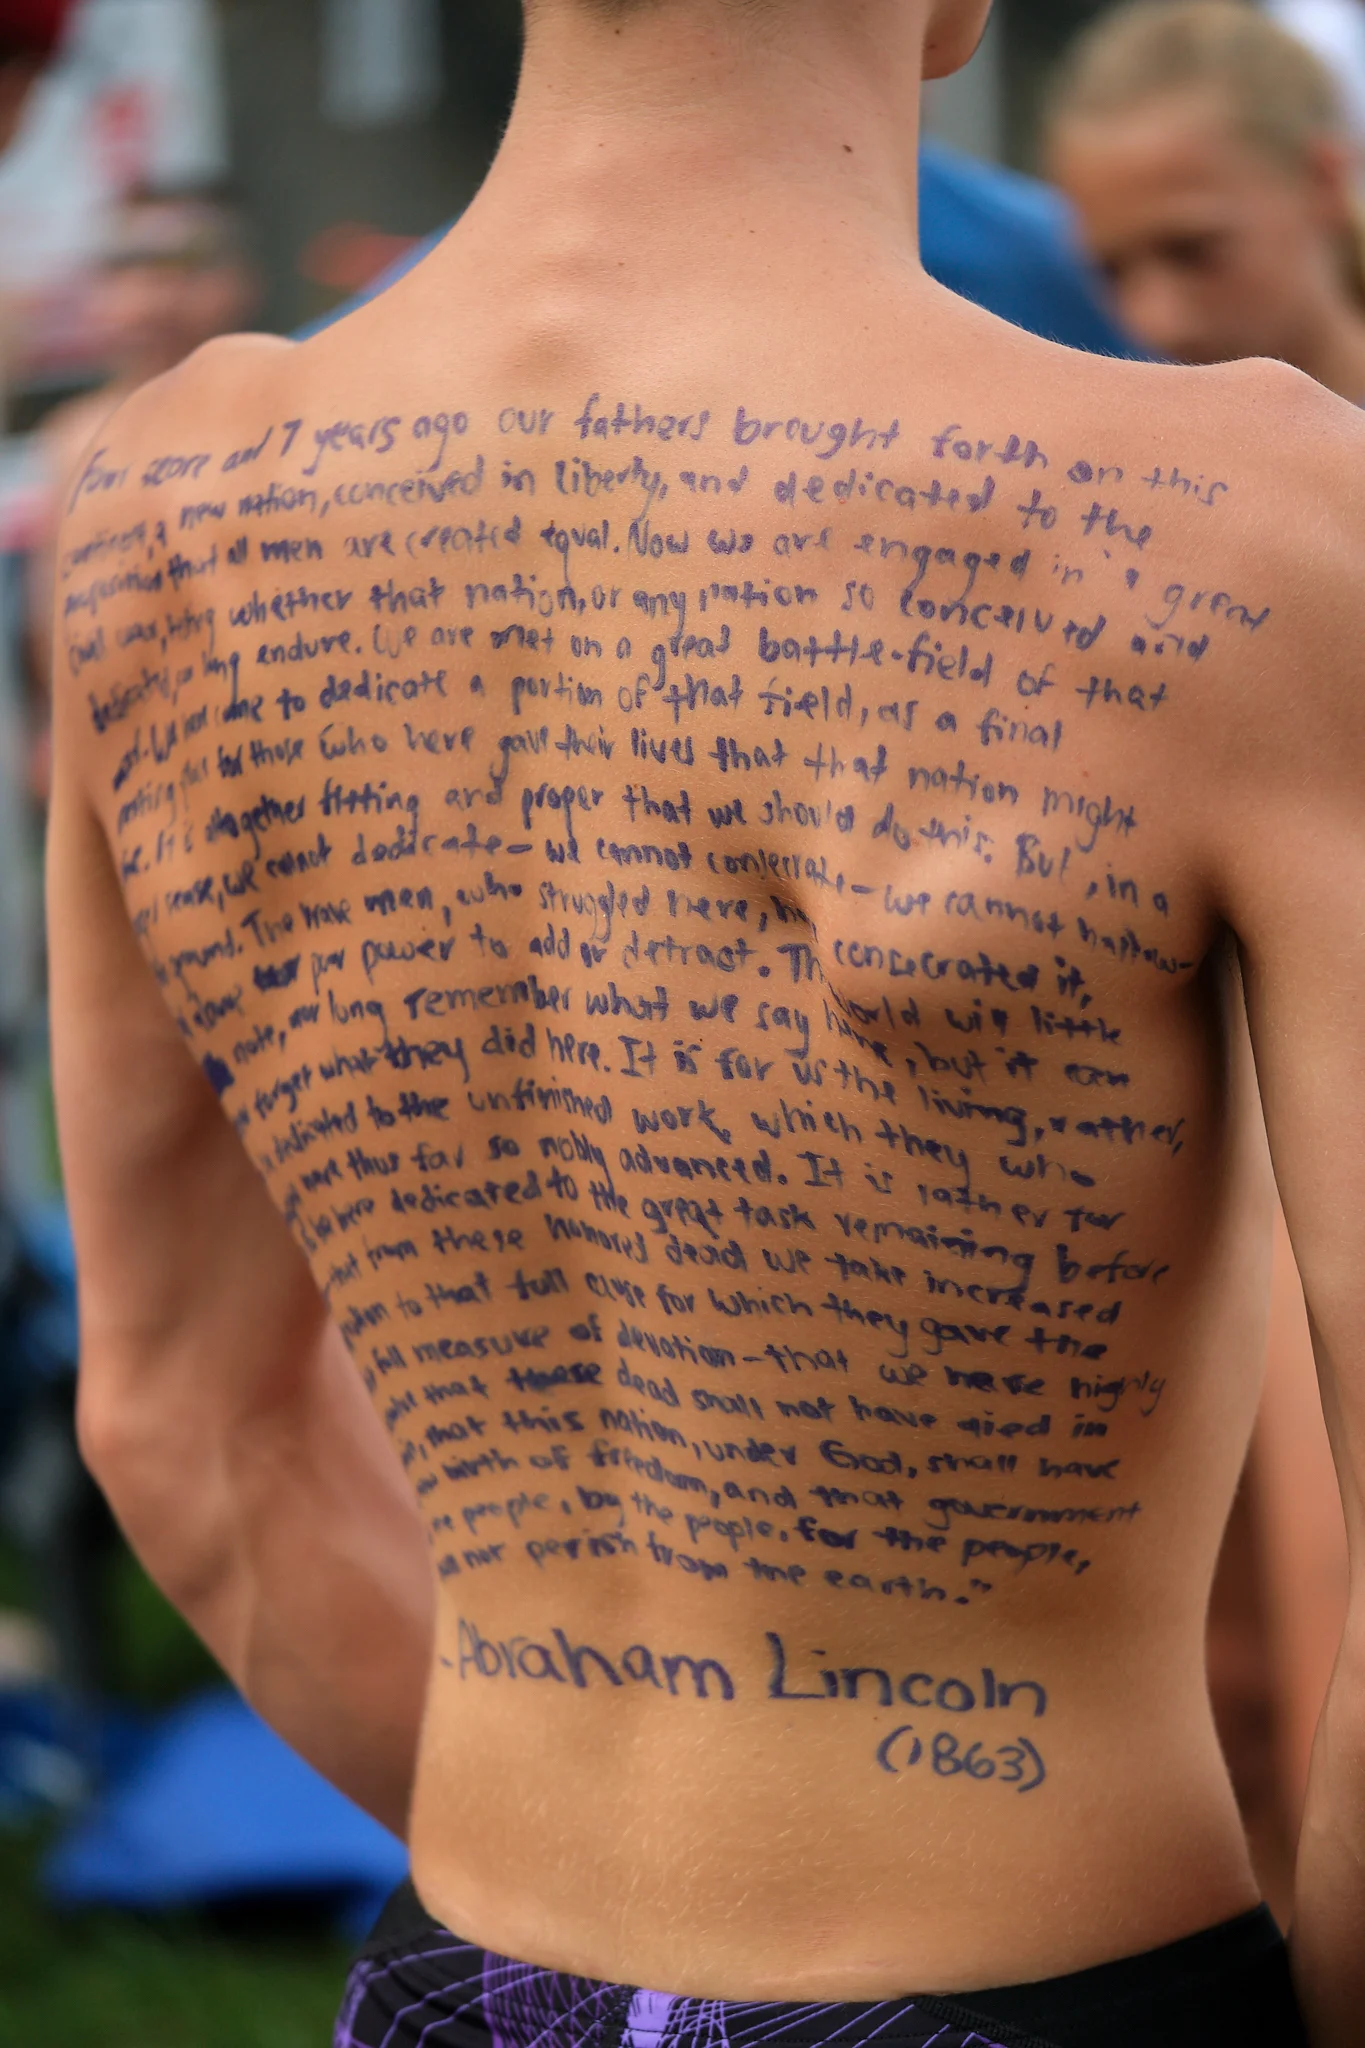 Four score and 7 years ago our fathers brought forth on this
continent, a new nation, conceived in liberty, and dedicated to the
proposition that all men are created equal. Now we are engaged in a great
civil war, testing whether that nation, or any nation so conceived and
dedicated, so long endure. We are met on a great battle-field of that
war. We have come to dedicate a portion of that field, as a final
resting place for those who here gave their lives that that nation might
live. It is altogether fitting and proper that we should do this. But, in a
sense, we cannot dedicate - we cannot consecrate - we cannot hallow -
ground. The brave men, who struggled here, consecrated it,
above our poor power to add or detract. The world will little
note, nor long remember what we say here, but it can
forget what they did here. It is for us the living, rather,
dedicated to the unfinished work, which they who
have thus far so nobly advanced. It is rather for
be here dedicated to the great task remaining before
that from these honored dead we take increased
to that full cause for which they gave the
full measure of devotion - that we here highly
that these dead shall not have died in
that this nation, under God, shall have
birth of freedom, and that government
people, by the people, for the people,
not perish from the earth."
-Abraham Lincoln
(1863)